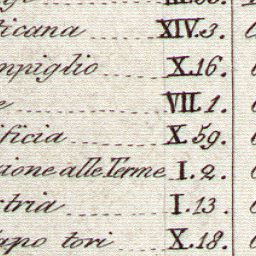 ticana XIV.3.
npiglio X.16.
e VII.1.
ificia X.59.
zione alle Terme I.2.
stria I.13.
tori X.18.